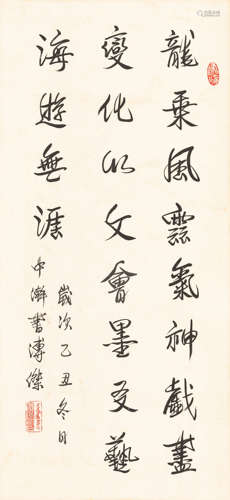 龍乘風靈氣神戲盡
變化以文會墨友藝
海遊無涯
歲次乙丑冬日
中澣書溥傑